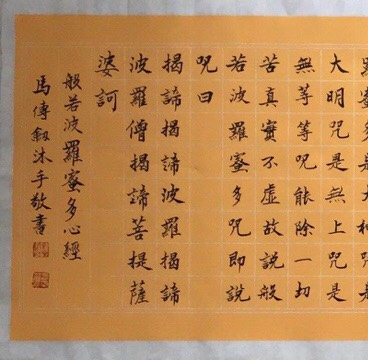 大明呪是無上呪是
無等等呪能除一切
苦真實不虛故說般
若波羅蜜多呪即說
呪曰
揭諦揭諦波羅揭諦
波羅僧揭諦菩提薩
婆訶
般若波羅蜜多心經
馬傳釼沐手敬書